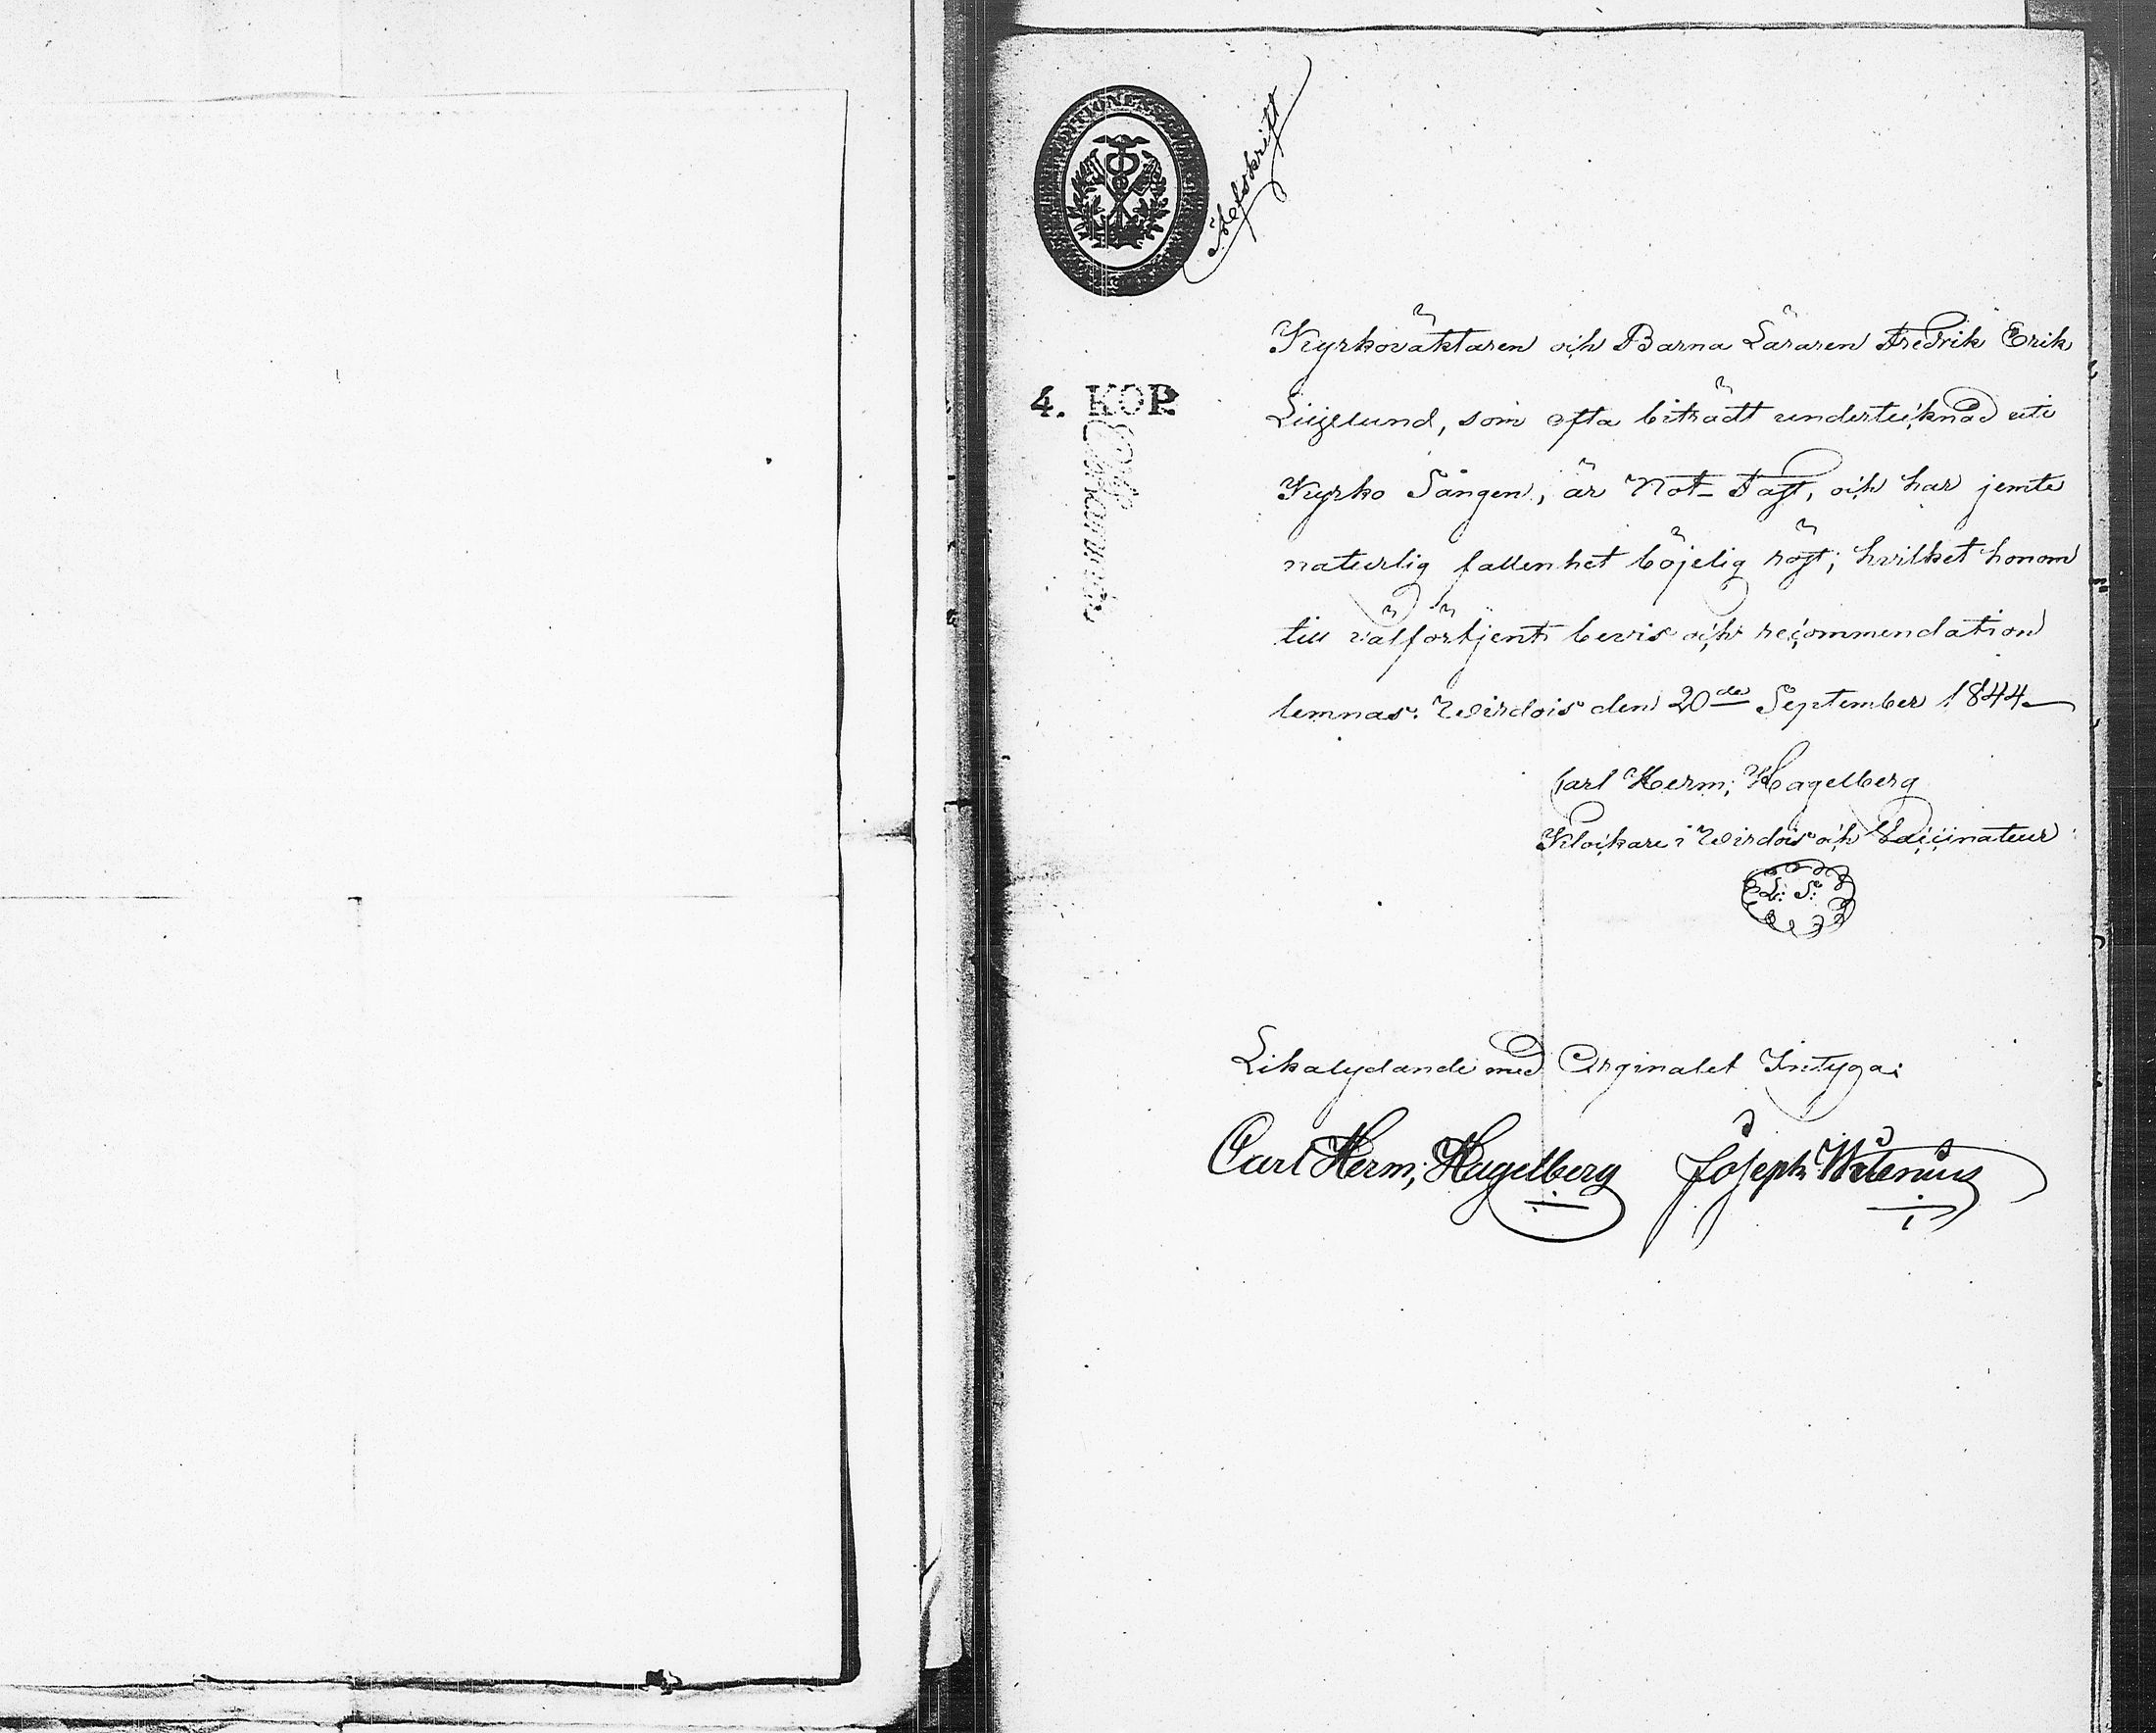 Afskrift
4. KOP.
Kyrkovaktaren och Barna Läraren Fredrik Erik
Liljelund, som ofta biträdt undertecknad uti
Kyrko Sången, är Not-Fast, och har jemte
naturlig fallenhet böjelig röst; hvilket honom
till välförtjent bevis och recommendation
lemnas. Wirdois den 20de September 1844
Carl Herm; Hagelberg
Klockare i Wirdois och Vaccinateur
L: S:
Likalydande med Orginalet Intyga:
Carl Herm; Hagelberg Joseph